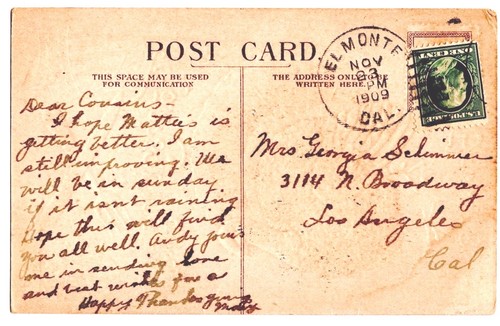 POST CARD.
THIS SPACE MAY BE USED
FOR COMMUNICATION
THE ADDRESS ONLY TO BE
WRITTEN HERE.
EL MONTE
NOV
23
PM
1909
CAL.
U.S. POSTAGE
ONE CENT
Dear Cousins -
I hope Mattie is
getting better. I am
still improving. We
will be in sunday
if it isnt raining
Hope this will find
you all well. Andy joins
me in sending love
and best wishes for a
Happy Thanksgiving
Mrs Georgia Schimmer
3114 N. Broadway
Los Angeles
Cal